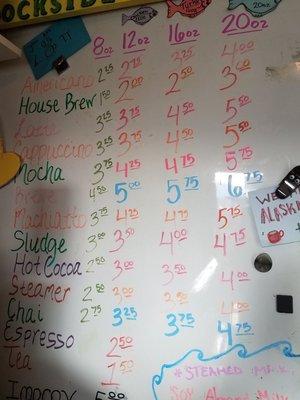 OCKSIDE
8oz 12oz 16oz 20oz
Americano 2.25 2.75 3.25 4.00
House Brew 1.50 2.00 2.50 3.00
Latte 3.25 3.75 4.50 5.50
Cappuccino 3.25 3.75 4.50 5.50
Mocha 3.75 4.25 4.75 5.75
Breve 4.50 5.00 5.75 6.75
Machiatto 3.75 4.25 4.75 5.75
Sludge 3.00 3.50 4.00 4.75
Hot Cocoa 2.50 3.00 3.50 4.00
Steamer 2.50 3.00 3.50 4.00
Chai 2.75 3.25 3.75 4.75
Espresso 2.50
Tea 1.50
Improv 5.00
ALASKA
*STEAMED Milk
Soy Almond Milk